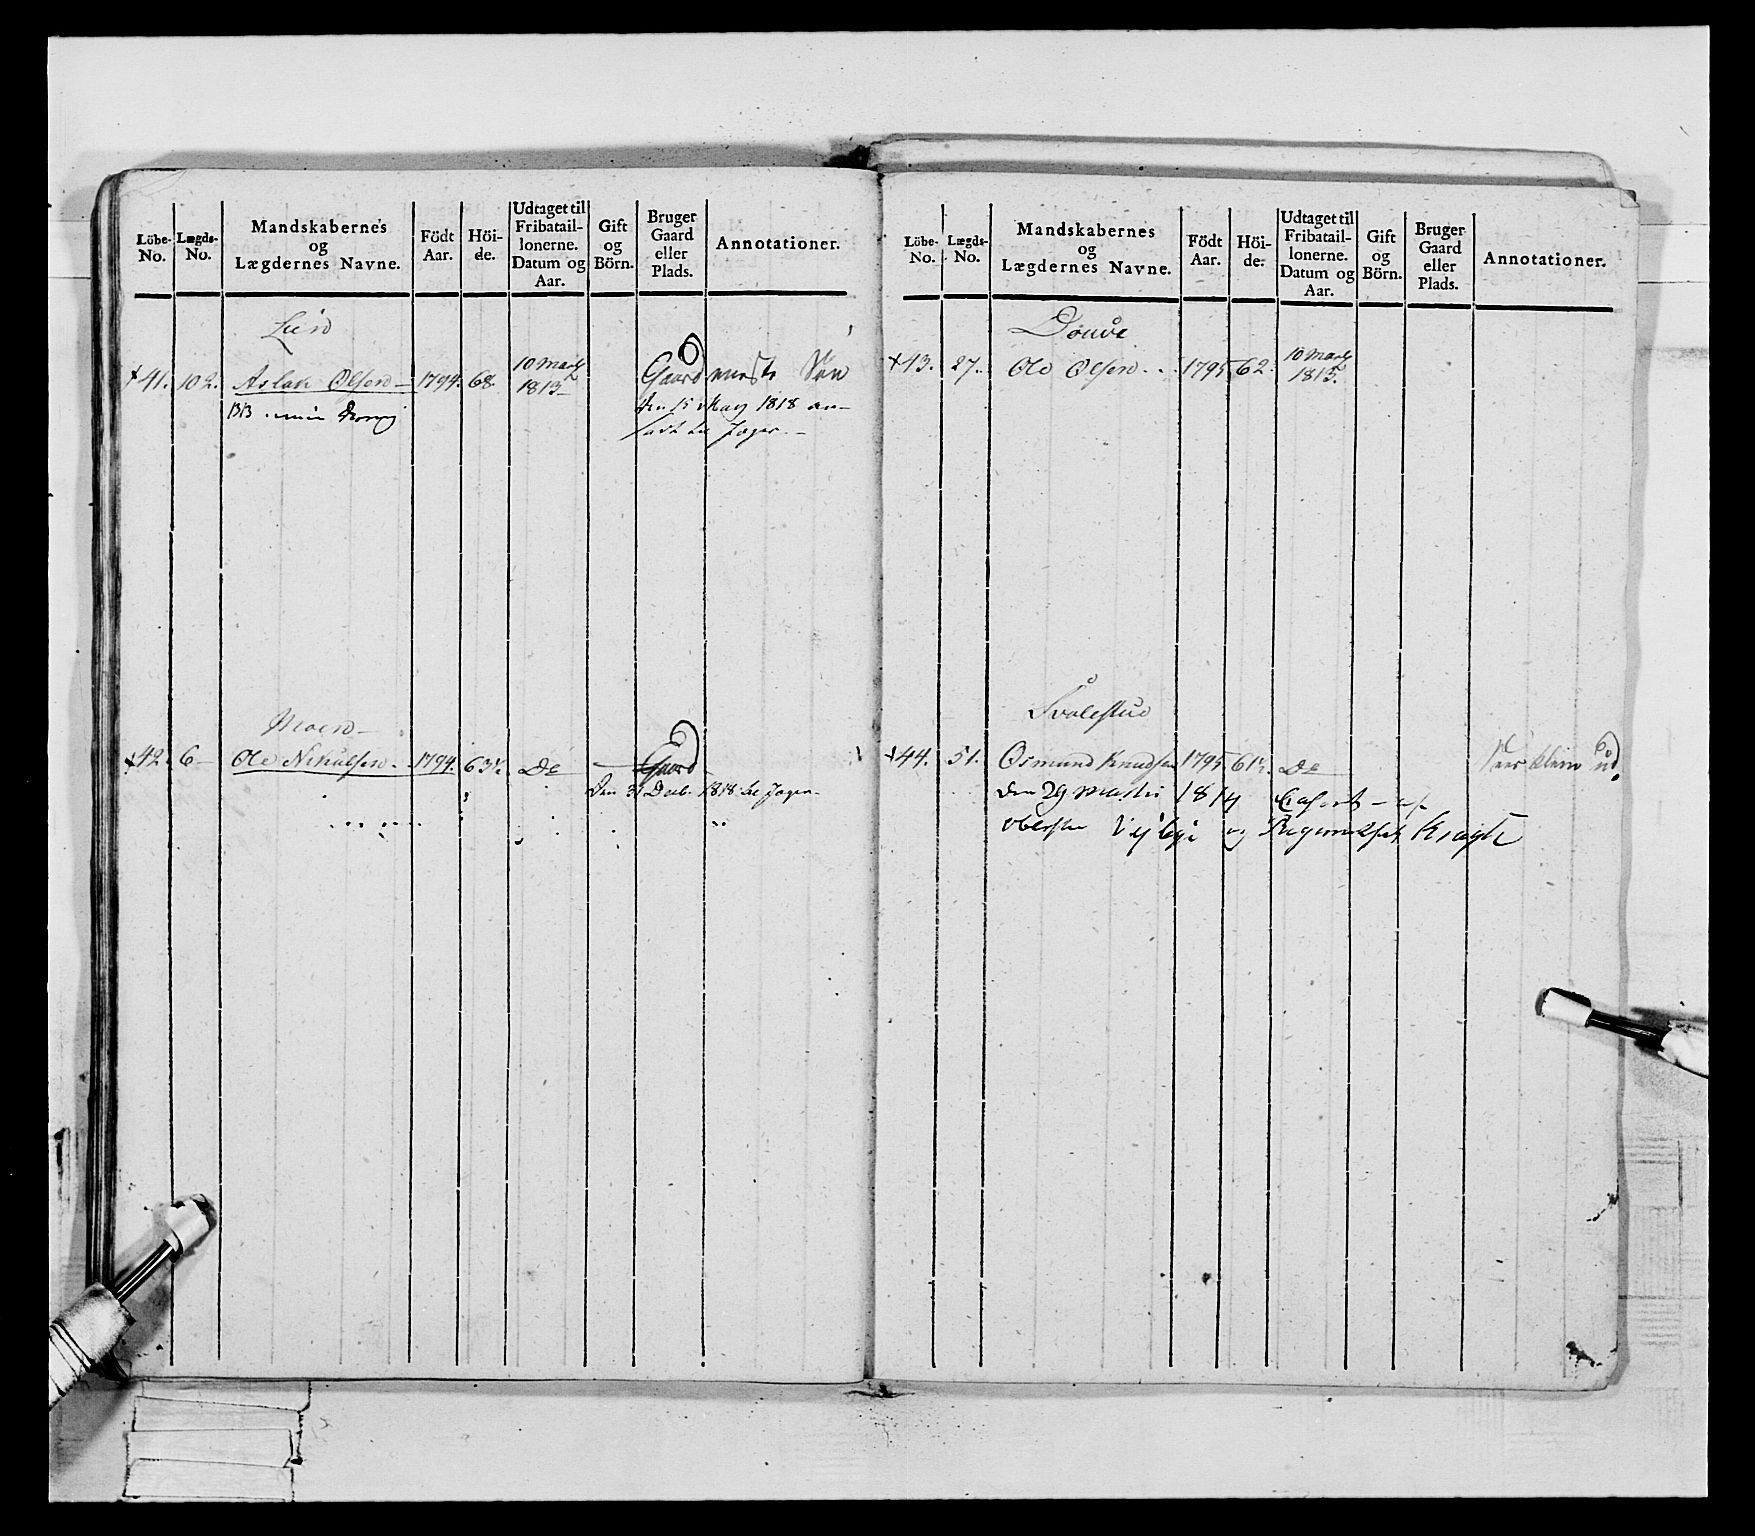 Löbe-No. Lægds-No. Mandskabernes og Lægdernes Navne. Födt Aar. Höi-de. Udtaget til Fribatail-lonerne. Datum og Aar. Gift og Börn. Bruger Gaard eller Plads. Annotationer.
Lien
+41. 102. Aslak Olsen 1794. 68. 10 Marts 1813 Gaard Søn
1313
den 15 May 1818 an-
sadt til Jæger.
Moen
+42. 6 Ole Nikulsen. 1794. 63½. Do Gaard
Den 31 Decb. 1818 til Jæger.
Löbe-No. Lægds-No. Mandskabernes og Lægdernes Navne. Födt Aar. Höi-de. Udtaget til Fribatail-lonerne. Datum og Aar. Gift og Börn. Bruger Gaard eller Plads. Annotationer.
+43. 27. Ole Olsen 1795 62. 10 Marts 1813.
Svalestue
+44. 51. Osmund Knudsen 1795 61½. Do
den 29 Martii Casert af
obersten og